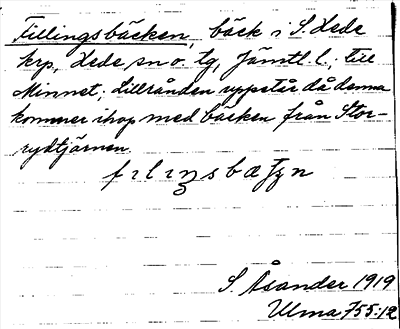 Fillingsbäcken, bäck i S. Hede
krp, Hede sn o. tg, Jämtl. l.; till
Minnet; Lillrånden uppstår då denna
kommer ihop med bäcken från Stor-
rydtjärnen.
S. Åsander 1919
Ulma 755:12